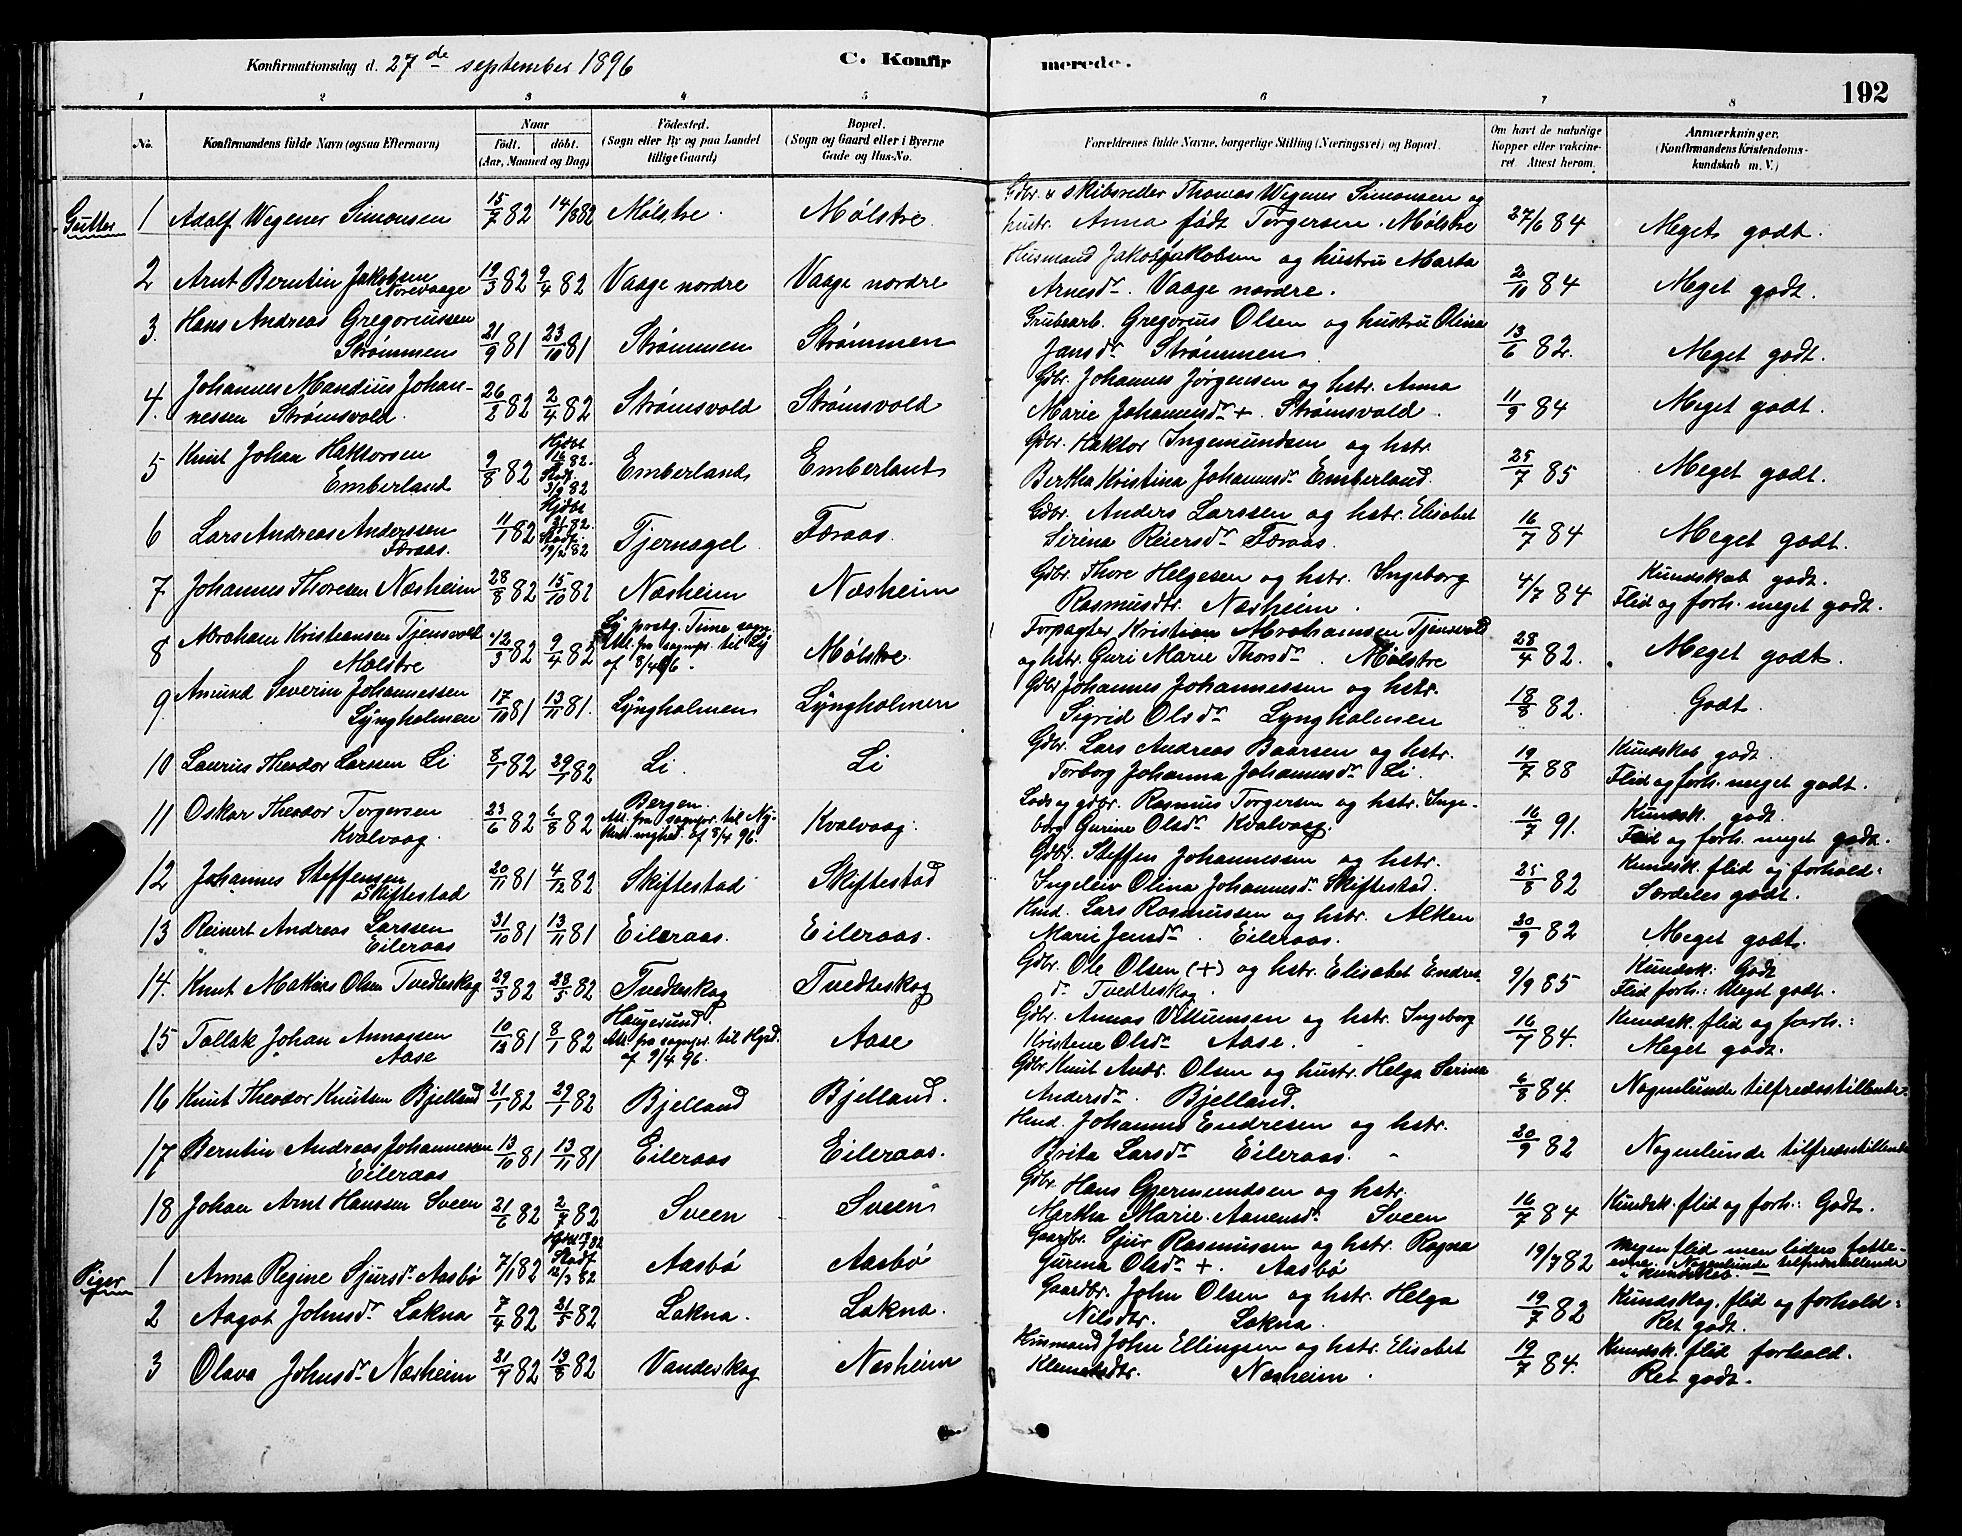 Konfirmationsdag d. 27de september 1896 C. Konfirmerede. 192
1 2 3 4 5 6 7 8
No. Konfirmandens fulde Navn (ogsaa Efternavn) Naar født. døbt. (Aar, Maaned og Dag) Fødested. (Sogn eller By og paa Landet tillige Gaard) Bopæl. (Sogn og Gaard eller i Byerne Gade og Hus-No. Forældrenes fulde Navne, borgerlige Stilling (Næringsvei) og Bopæl. Om havt de naturlige Kopper eller vakcineret. Attest herom. Anmærkninger. (Konfirmandens Kristendomskundskab m. V.)
Gutter
1 Adolf Wegener Simonsen 15/7 82 14/8 82 Mølstre. Mølstre. Gdbr. & skibsreder Thomas Wegener Simonsen og
hustr. Anna født Torgersen. Mølstre 27/6 84 Meget godt.
2 Arnt Berntin Jakobsen
Norevaage 19/3 82 9/4 82 Vaage nordre Vaage nordre Husmand Jakob Jakobsen og hustru Marta
Arnesdr. Vaage nordre. 2/10 84 Meget godt.
3. Hans Andreas Gregoriussen
Strømmen 21/9 81 23/10 81 Strømmen Strømmen Grubearb. Gregorius Olsen og hustru Olina
Jansdr. Strømmen 13/6 82. Meget godt.
4. Johannes Mandius Johan-
nessen Strømsvold. 26/2 82 2/4 82 Strømsvold Strømsvold Gdbr. Johannes Jørgensen og hstr. Anna
Marie Johannesdr +. Strømsvold. 11/9 84 Meget godt.
5 Knut Johan Haktorsen
Emberland 9/8 82 Hjdbt 82. Stadf. 3/9 82 Emberland Emberland Gdbr. Haktor Ingemundsen og hstr.
Bertha Kristina Johannesdr Emberland. 25/7 85 Meget godt.
6 Lars Andreas Anderssen
Færaas. 11/1 82 Hjdbt 21/1 82. Stadf. 19/2 82 Tjernagel Færaas Gdbr. Anders Larssen og hstr. Elisabet
Sirena Reiersdr Færaas. 16/7 84 Meget godt.
7 Johannes Thoresen Næsheim 28/8 82 15/10 82 Næsheim Næsheim Gdbr. Thore Helgesen og hstr. Ingeborg
Rasmusdtr. Næsheim. 4/7 84 Kundskab godt.
Flid og forh. meget godt.
8 Abraham Kristiansen Tjensvold
Mølstre 12/3 82 9/4 82 Ly prstg. Time sogn.
Att. fra sognpr. til Ly
af 8/4 96. Mølstre. Forpagter Kristian Abrahamsen Tjensvold
og hstr. Guri Marie Thorsdr. Mølstre 28/4 82. Meget godt.
9 Amund Severin Johannessen
Lyngholmen 17/10 81 13/11 81. Lyngholmen Lyngholmen Gdbr Johannes Johannessen og hstr.
Sigrid Olsdr Lyngholmen 18/8 82. Godt.
10 Laurius Theodor Larssen Li 8/1 82 29/1 82 Li. Li Gdbr. Lars Andreas Baarsen og hstr.
Torborg Johanna Johannesdr Li. 19/7 88 Kundskab godt.
Flid og forh. meget godt.
11 Oskar Theodor Torgersen
Kvalvaag. 23/6 82 6/8 82 Bergen.
Att. fra sognpr. til Ny-
kirk. mghed. af 8/4 96. Kvalvaag. Lods og gdbr. Rasmus Torgersen og hstr. Inge-
borg Gurine Olsdr Kvalvaag. 16/7 91. Kundsk. godt.
Flid og forh. meget godt.
12 Johannes Steffensen
Skiftestad 20/11 81 4/12 82 Skiftestad Skiftestad Gdbr. Steffen Johannessen og hstr.
Ingeleiv Olina Johannesdr Skiftestad. 25/8 82 Kundsk. flid og forhold:
Særdeles godt.
13 Reinert Andreas Larssen
Eileraas 31/10 81 13/11 81 Eileraas. Eileraas. Hmd. Lars Rasmussen og hstr. Alken
Marie Jensdr. Eileraas. 20/9 82 Meget godt.
14. Knut Mathias Olsen Tvedteskog 29/3 82 28/5 82 Tvedteskog Tvedteskog Gdbr. Ole Olsen (+) og hstr. Elisabet Endres-
dr Tvedteskog. 9/9 85 Kundsk: Godt
Flid forh.: Meget godt.
15 Tollak Johan Annassen
Aase 10/12 81 8/1 82 Haugesund.
Att. fra sognpr. til Hgsd.
af 9/4 96. Aase Gdbr. Annas Villumsen og hstr. Ingeborg
Kristene Olsdr Aase. 16/7 84. Kundsk. flid og forh.:
Meget godt.
16 Knut Theodor Knutsen Bjelland 21/1 82 29/1 82 Bjelland Bjelland. Gdbr Knut Andr. Olsen og hustr. Helga Serina
Andersdr. Bjelland. 6/8 84. Nogenlunde tilfredsstillende.
17 Berntin Andreas Johannessen
Eileraas 13/10 81 13/11 81 Eileraas Eileraas. Hmd. Johannes Endresen og hstr.
Brita Larsdr Eileraas. 20/9 82 Nogenlunde tilfredsstillende
18 Johan Arnt Hanssen Sveen 21/6 82 2/7 82 Sveen Sveen Gdbr. Hans Gjermundsen og hstr.
Martha Marie Aanensdr Sveen 16/7 84 Kundsk. flid og forh.: Godt.
Piger
1 Anna Regine Sjursdr Aasbø 7/1 82 Stadf 12/3 82 Aasbø Aasbø Gaardbr. Sjur Rasmussen og hstr. Ragna
Gurina Olsdr +. Aasbø 19/7 82 Megen flid men liden fatte-
evne. Nogenlunde tilfredsstillende
i kundskab.
2 Aagot Johnsdr Lokna 7/4 82 21/5 82 Lokna. Lokna. Gaardbr. John Olsen og hstr. Helga
Nilsdtr. Lokna. 19/7 82 Kundskab, flid og forhold:
Ret godt.
3 Olava Johnsdr Næsheim 21/7 82 13/8 82 Vanderskog Næsheim Husmand John Ellingsen og hstr. Elisabet
Klemetsdtr. Næsheim. 19/7 84. Kundsk. flid forhold.
Ret godt.